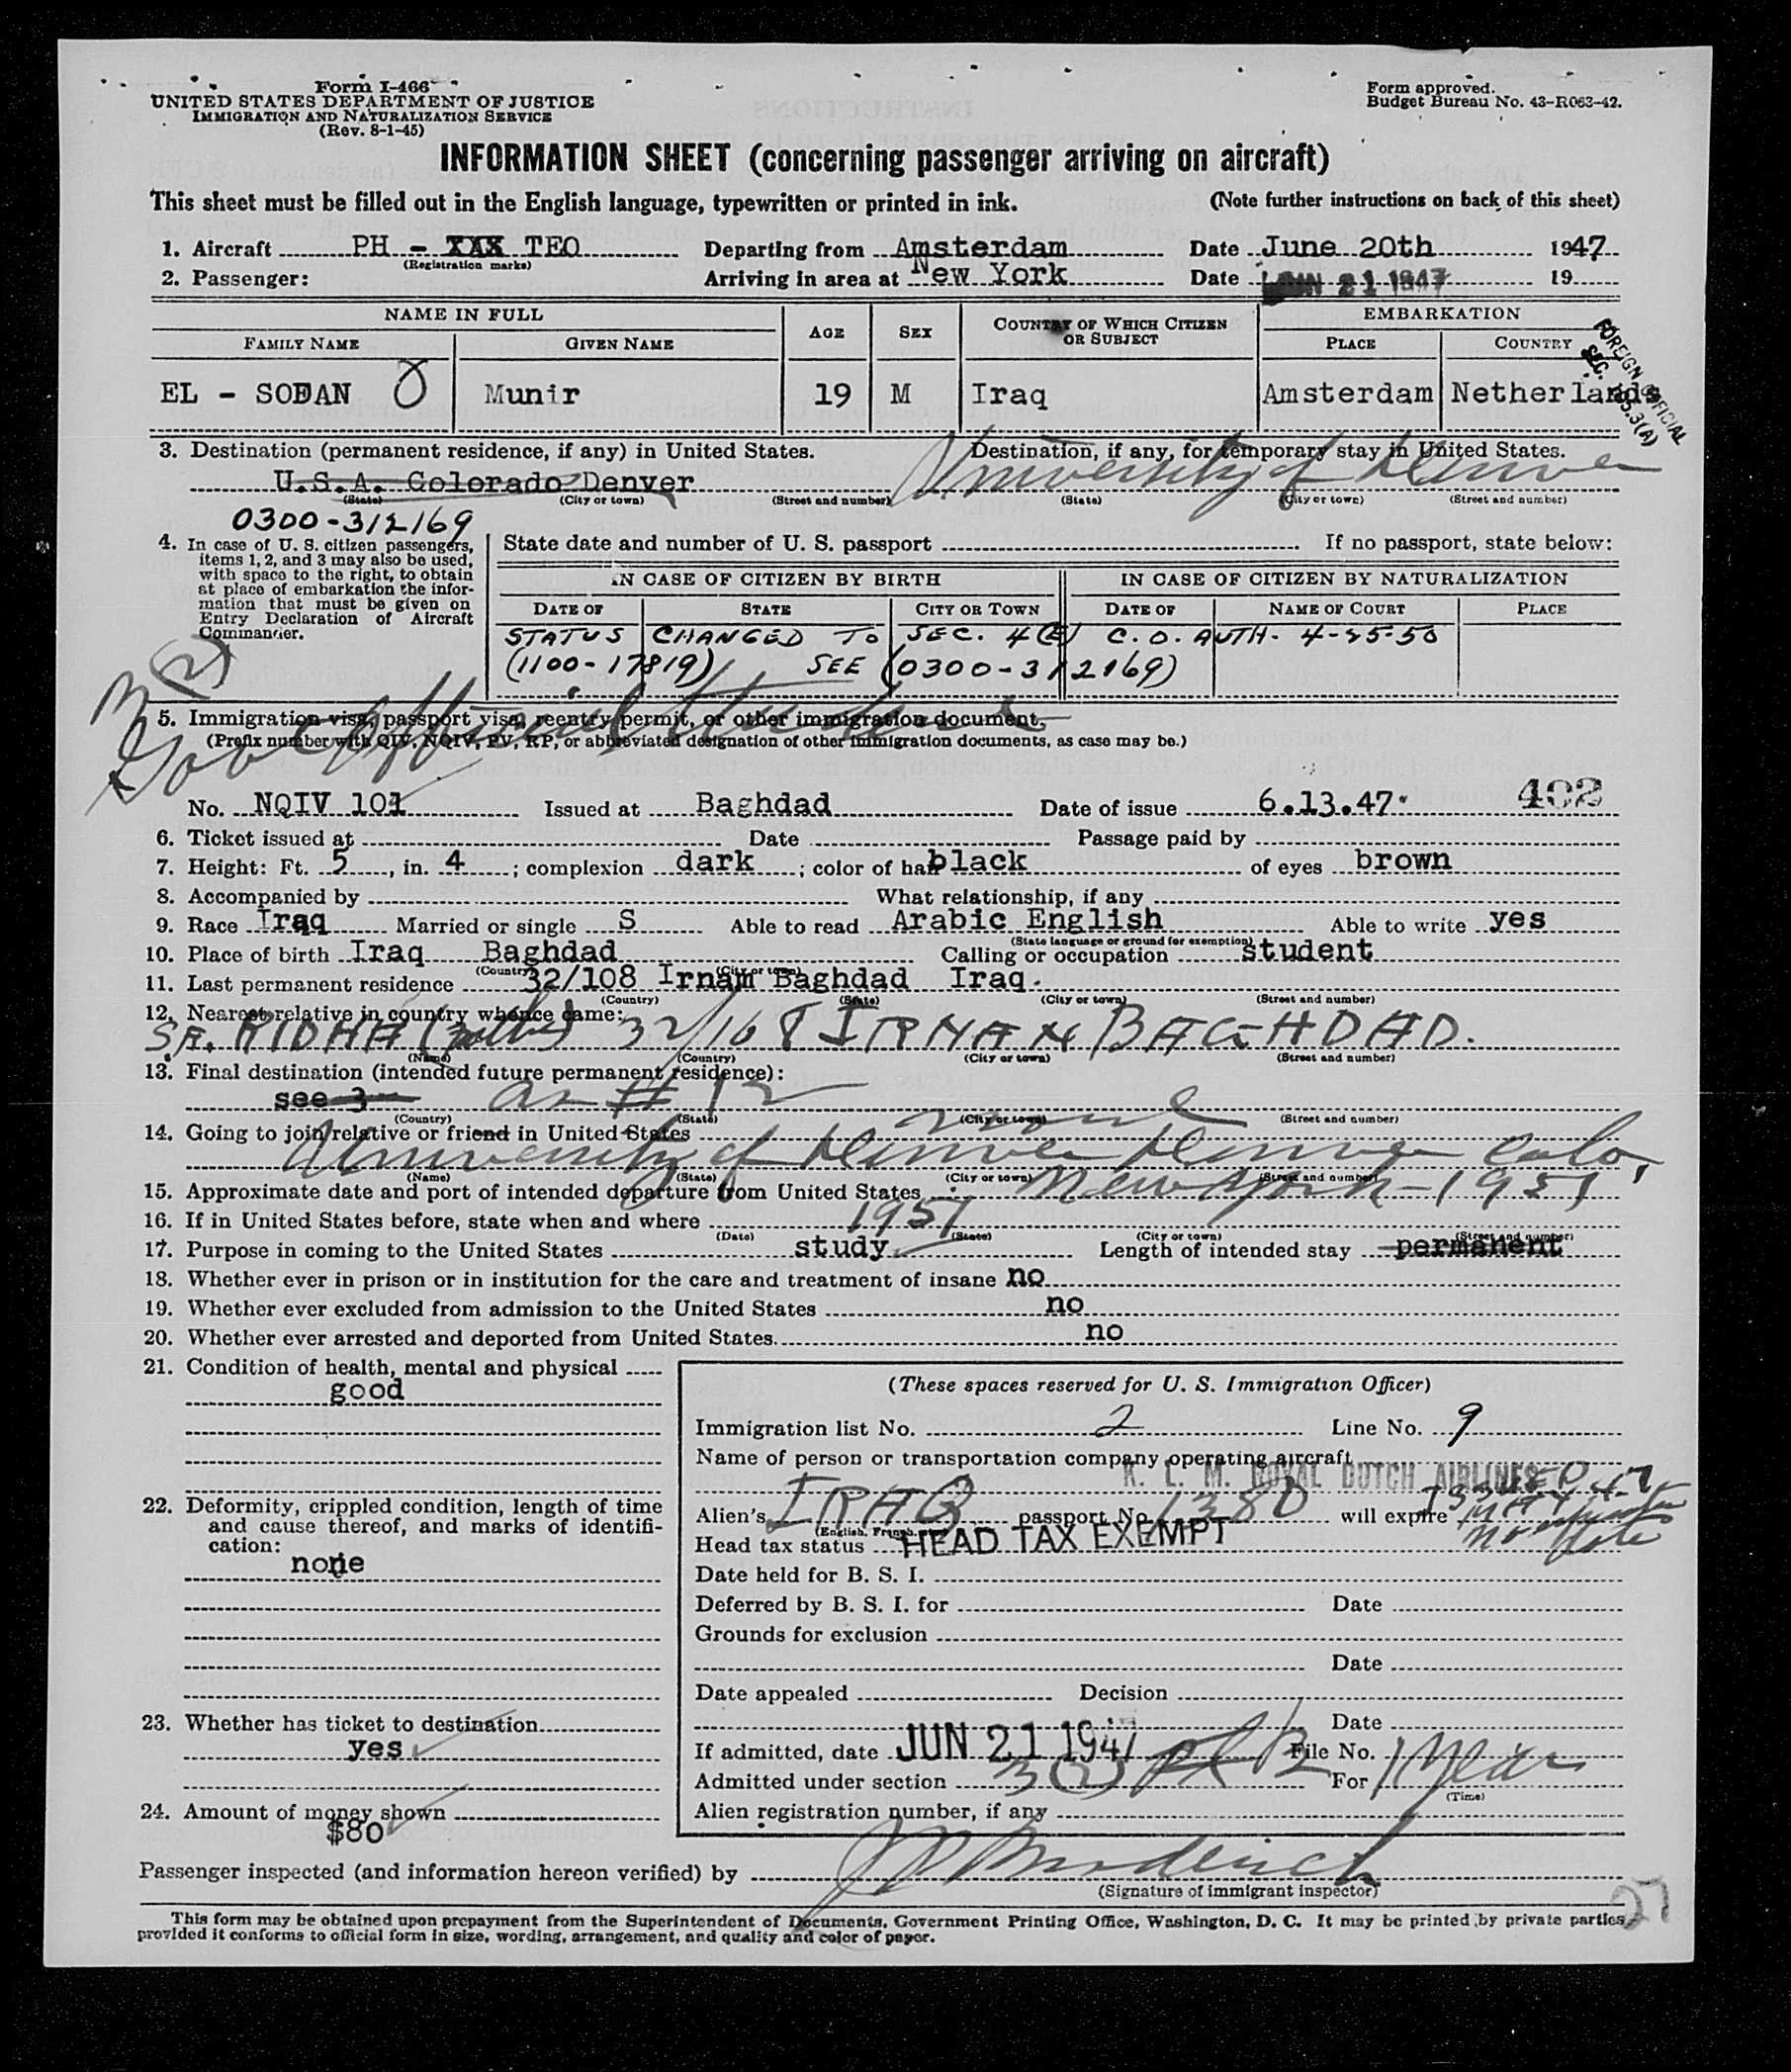 Form I-466
UNITED STATES DEPARTMENT OF JUSTICE
IMMIGRATION AND NATURALIZATION SERVICE
(Rev. 8-1-45)
Form approved.
Budget Bureau No. 43-R063-42.
INFORMATION SHEET (concerning passenger arriving on aircraft)
This sheet must be filled out in the English language, typewritten or printed in ink. (Note further instructions on back of this sheet)
1. Aircraft PH - XXX TEO Departing from Amsterdam Date June 20th 1947
(Registration marks)
2. Passenger: Arriving in area at New York Date JUN 21 1947 19
NAME IN FULL AGE SEX COUNTRY OF WHICH CITIZEN OR SUBJECT EMBARKATION
FAMILY NAME GIVEN NAME PLACE COUNTRY
FOREIGN OFFICIAL
EL - SODAN Munir 19 M Iraq Amsterdam Netherlands
3. Destination (permanent residence, if any) in United States. Destination, if any, for temporary stay in United States.
U.S.A. Colorado Denver University of Denver
(State) (City or town) (Street and number) (State) (City or town) (Street and number)
0300-312169
4. In case of U. S. citizen passengers, items 1, 2, and 3 may also be used, with space to the right, to obtain at place of embarkation the information that must be given on Entry Declaration of Aircraft Commander.
State date and number of U. S. passport If no passport, state below:
IN CASE OF CITIZEN BY BIRTH IN CASE OF CITIZEN BY NATURALIZATION
DATE OF STATE CITY OR TOWN DATE OF NAME OF COURT PLACE
STATUS CHANGED TO SEC. 4(E) C.O. AUTH. 4-25-50
(1100-17819) SEE (0300-312169)
3(2)
Gov Official Student
5. Immigration visa, passport visa, reentry permit, or other immigration document.
(Prefix number with QIV, NQIV, PV, RP, or abbreviated designation of other immigration documents, as case may be.)
402
No. NQIV 101 Issued at Baghdad Date of issue 6.13.47
6. Ticket issued at Date Passage paid by
7. Height: Ft. 5, in. 4; complexion dark; color of hair black of eyes brown
8. Accompanied by What relationship, if any
9. Race Iraq Married or single S Able to read Arabic English Able to write yes
(State language or ground for exemption)
10. Place of birth Iraq Baghdad Calling or occupation student
(Country) (City or town)
11. Last permanent residence 32/108 Irnam Baghdad Iraq.
(Country) (State) (City or town) (Street and number)
12. Nearest relative in country whence came:
RIDHA 32/168 IRNAN BAGHDAD.
(Name) (Country) (City or town) (Street and number)
13. Final destination (intended future permanent residence):
see 3 as # 12
(Country) (State) (City or town) (Street and number)
14. Going to join relative or friend in United States none
University of Denver Denver Colo,
(Name) (State) (City or town) (Street and number)
15. Approximate date and port of intended departure from United States New York - 1951
16. If in United States before, state when and where 1951
(Date) (State) (City or town) (Street and number)
17. Purpose in coming to the United States study Length of intended stay permanent
18. Whether ever in prison or in institution for the care and treatment of insane no
19. Whether ever excluded from admission to the United States no
20. Whether ever arrested and deported from United States. no
21. Condition of health, mental and physical
good
22. Deformity, crippled condition, length of time and cause thereof, and marks of identification:
none
23. Whether has ticket to destination
yes
24. Amount of money shown
$80
(These spaces reserved for U. S. Immigration Officer)
Immigration list No. 2 Line No. 9
Name of person or transportation company operating aircraft
K. L. M. ROYAL DUTCH AIRLINES
Alien's IRAQ passport No. 1380 will expire
(English, French,
Head tax status HEAD TAX EXEMPT
Date held for B. S. I.
Deferred by B. S. I. for Date
Grounds for exclusion
Date
Date appealed Decision
Date
If admitted, date JUN 21 1947 File No.
Admitted under section 3(2) For 1 Year
(Time)
Alien registration number, if any
Passenger inspected (and information hereon verified) by
(Signature of immigrant inspector)
27
This form may be obtained upon prepayment from the Superintendent of Documents, Government Printing Office, Washington, D. C. It may be printed by private parties,
provided it conforms to official form in size, wording, arrangement, and quality and color of paper.